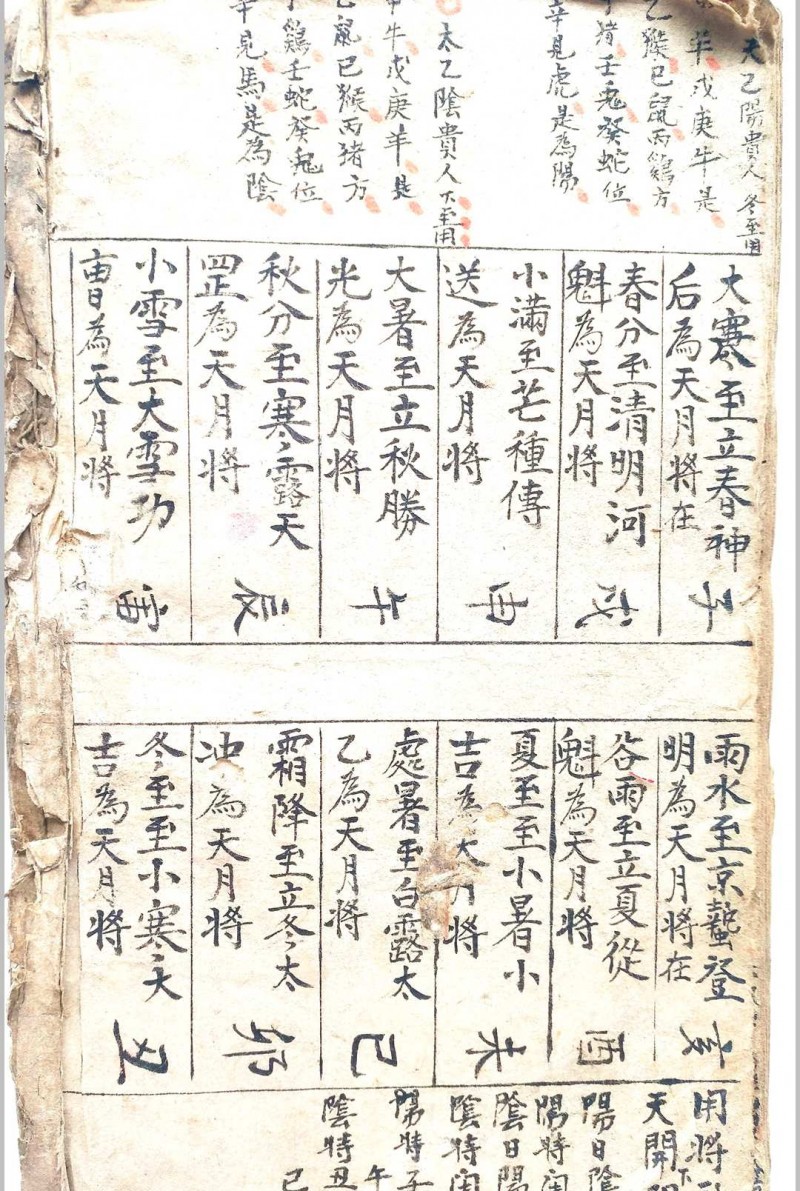 天乙陽貴人 冬至用
羊戊庚牛是
乙猴巳鼠丙鷄方
猪壬兎癸蛇位
辛見虎是為陽
太乙陰貴人 下至用
牛戊庚羊是
乙鼠巳猴丙猪方
鷄壬蛇癸兎位
辛見馬是為陰
大寒至立春神
后為天月將在
子
春分至清明河
魁為天月將
戌
小滿至芒種傳
送為天月將
申
大暑至立秋勝
光為天月將
午
秋分至寒露天
罡為天月將
辰
小雪至大雪功
曺為天月將
寅
雨水至京蟄登
明為天月將在
亥
谷雨至立夏從
魁為天月將
酉
夏至至小暑小
吉為天月將
未
處暑至白露太
乙為天月將
巳
霜降至立冬太
冲為天月將
卯
冬至至小寒大
吉為天月將
丑
用將
天開
陽日陰
陽時
陰日陽
陰時
陽時子
午
陰時丑
巳